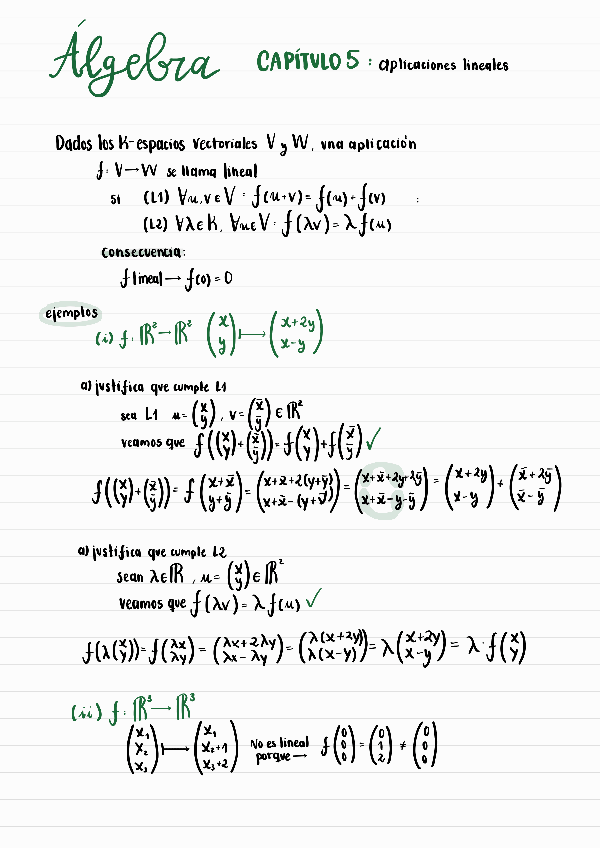 Álgebra CAPÍTULO 5: Aplicaciones lineales
Dados los K-espacios vectoriales V y W, una aplicación
f: V → W se llama lineal
si (L1) ∀u,v ∈ V : f(u+v) = f(u) + f(v) :
(L2) ∀λ ∈ K, ∀u ∈ V : f(λv) = λ f(u)
Consecuencia:
f lineal → f(0) = 0
ejemplos
(i) f: ℝ² → ℝ² (x y) ↦ (x+2y x-y)
a) justifica que cumple L1
sea L1 u = (x y), v = (x̄ ȳ) ∈ ℝ²
veamos que f((x y)+(x̄ ȳ)) = f(x y) + f(x̄ ȳ) ✓
f((x y)+(x̄ ȳ)) = f(x+x̄ y+ȳ) = (x+x̄+2(y+ȳ) x+x̄-(y+ȳ)) = (x+x̄+2y+2ȳ x+x̄-y-ȳ) = (x+2y x-y) + (x̄+2ȳ x̄-ȳ)
a) justifica que cumple L2
sean λ ∈ ℝ, u = (x y) ∈ ℝ²
veamos que f(λu) = λ f(u) ✓
f(λ(x y)) = f(λx λy) = (λx+2λy λx-λy) = (λ(x+2y) λ(x-y)) = λ(x+2y x-y) = λ · f(x y)
(ii) f: ℝ³ → ℝ³
(x₁ x₂ x₃) ↦ (x₁ x₂+1 x₃+2) No es lineal porque → f(0 0 0) = (0 1 2) ≠ (0 0 0)